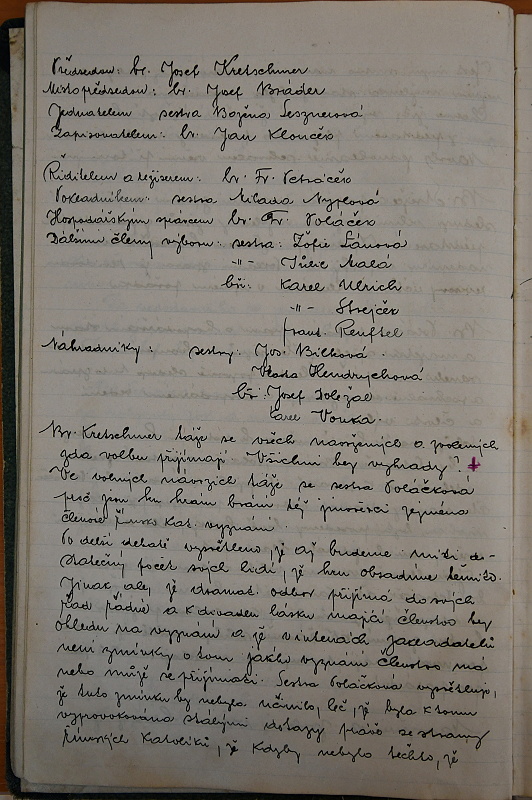 Předsedou: br. Josef Kretschmer
Místopředsedou: br. Josef Bráder
Jednatelem sestra Božena Lesznerová
Zapisovatelem: br. Jan Klouček
Ředitelem a režiserem: br. Fr. Petráček
Pokladníkem: sestra Milada Nyplová
Hospodářským správcem br. Fr. Poláček
Dalšími členy výboru: sestra: Žofie Lánová
-"- Julie Malá
bří: Karel Ulrich
-"- Strejček
frant. Renftel
Náhradníky: sestry: Jos. Bílková.
Vlasta Hendrychová
bří: Josef Doležal
Karel Vonka.
Br. Kretschmer táže se všech navržených a zvolených
zda volbu přijímají. Všichni bez výhrady? +
Ve volných návrzích táže se sestra Poláčková
proč jsou ku hrám bráni též jinověrci zejména
členové Římsko Kat. vyznání.
Po delší debatě vysvětleno, je až budeme míti do-
statečný počet svých lidí, že hru obsadíme těmito.
Jinak ale, že dramat. odbor přijímá do svých
řad řádné a k divadlu lásku mající členstvo bez
ohledu na vyznání a že v intencích zakladatelů
není zmínky o tom jakého vyznání členstvo má
nebo může se přijímati. Sestra Poláčková vysvětluje,
že tuto zmínku by nebyla učinila, leč, že byla k tomu
vyprovokována stálými dotazy právě se strany
římských Katolíků, že kdyby nebylo těchto, že